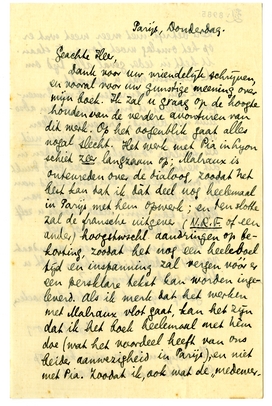 Parijs, Donderdag.
Geachte Heer,
Dank voor uw vriendelijk schrijven,
en vooral voor uw gunstige meening over
mijn boek. Ik zal u graag op de hoogte
houden van de verdere avonturen van
dit werk. Op het oogenblik gaat alles
nogal slecht. Het werk met Pia in Lyon
schiet zéér langzaam op; Malraux is
ontevreden over de dialoog, zoodat het
best kan dat ik dàt deel nog heelemaal
in Parijs met hem overwerk; en ten slotte
zal de fransche uitgever (N.R.F. of een
ander) hoogstwschl. aandringen op be-
korting, zoodat het nog een heeleboel
tijd en inspanning zal vergen vóór er
een persklare tekst kan worden inge-
leverd. Als ik merk dat het werken
met Malraux vlot gaat, kan het zijn
dat ik het boek heelemaal met hem
doe (wat het voordeel heeft van ons
beider aanwezigheid in Parijs), en niet
met Pia. Zoodat ik, ook wat de "medewer-